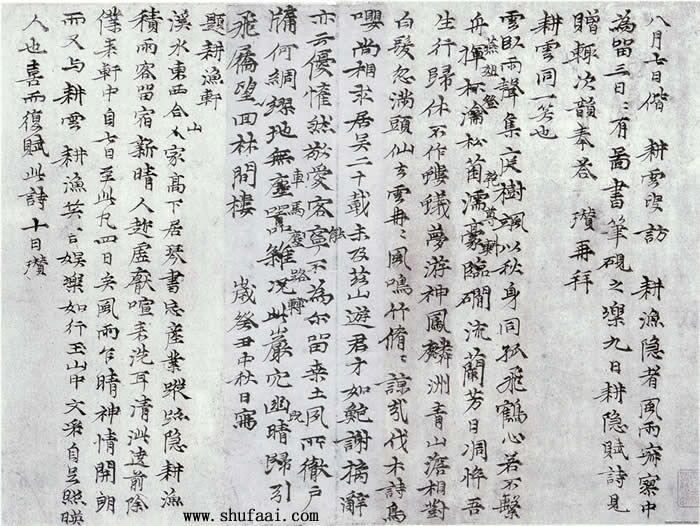 八月七日偕 耕雲叟訪 耕漁隱者風雨寂寥中
為留三日〻有圖書筆硯之樂九日耕隱賦詩見
贈輒次韻奉答 瓚再拜
耕雲同一笑也
雲臥雨聲集庭樹颯以秋身同孤飛鶴心若不繫
舟揮杯瀹松菌濡豪臨磵流蘭芳日凋悴吾
生行歸休不作螻蟻夢游神鳳麟洲青山澹相對
白髮忽滿頭仙去雲冉〻風鳴竹脩〻諒哉伐木詩鳥
嚶尚相求居吳二十載未及茲山遊君才如鮑謝摛辭
亦云優惟然敬愛客寧不為尔留桑土夙所徹戶
牖何綢繆地無塵囂雜况此巖穴幽晴歸引
車馬塵 路轉
飛屩望回林間樓 歲癸丑中秋日寫
題耕漁軒
溪水東西合人家高下居琴書忘產業蹤跡隱耕漁
山
積雨客留宿新晴人趁虛厭喧來洗耳清泚遶前除
僕來軒中自七日至此凡四日矣風雨乍晴神情開朗
而又与耕雲 耕漁笑言娛樂如行玉山中文采自足照暎
人也喜而復賦此詩 十日瓚
www.shufaai.com